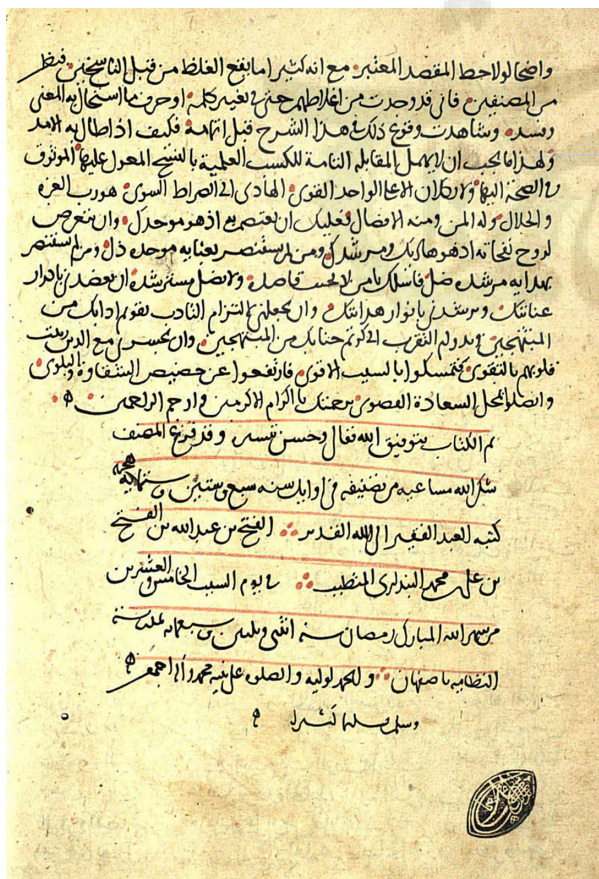 واضحا لو لاحظ المقصد المعتبر مع انه كثيرا ما يقع الغلط من قبل الناسخين فيظن
من المصنفين فانى قد وجدت من اغلاطهم حتى فى تغيير كلمة او حرف ما استحال به المعنى
وفسد وشاهدت وقوع ذلك فى هذا الشرح قبل اتمامه فكيف اذا طال به الامد
ولهذا ما يجب ان لا يهمل المقابله التامة للكتب العلمية بالنسخ المعول عليها الموثوق
فى الصحة اليها ولا تكلان الا على الواحد القوى الهادى الى الصراط السوى هو رب العزة
والجلال وله المن ومنه الافضال فعليك ان تعتصم به اذ هو موجدك وان تتعرض
لروح نفحاته اذ هو هاديك ومرشدك ومن لم يستنصر بعناية موجده ذل ومن لم يستبصر
بهداية مرشده ضل فاسلك يا من لا يخيب قاصده ولا يضل مسترشده ان تعضدنى بادرار
عنايتك وترشدنى بانوار هدايتك وان تجعلنى بالتزام التادب بقويم ادابك من
المنتهجين وبدوام التقرب الى كريم جنابك من المبتهجين وان تحشرنى مع الذين زينت
قلوبهم بالتقوى فتمسكوا بالسبب الاقوى فارتفعوا عن حضيض الشقاوة والبلوى
واتصلوا بمحل السعادة القصوى برحمتك يا اكرم الاكرمين وارحم الراحمين
تم الكتاب بتوفيق الله تعالى وحسن تيسيره وقد فرغ المصنف
شكر الله مساعيه من تصنيفه فى اوايل سنه سبع وستين وستمايه هجريه
كتبه العبد الفقير الى الله القدير الفتح بن عبد الله بن الفتح
بن على محمد المتطبب فى يوم السبت الخامس والعشرين
من شهر الله المبارك رمضان سنة اثنى وثلثين وسبعمايه بمدرسة
النظاميه باصفهان والحمد لوليه والصلوة على نبيه محمد وآله اجمعين
وسلم تسليما كثيرا